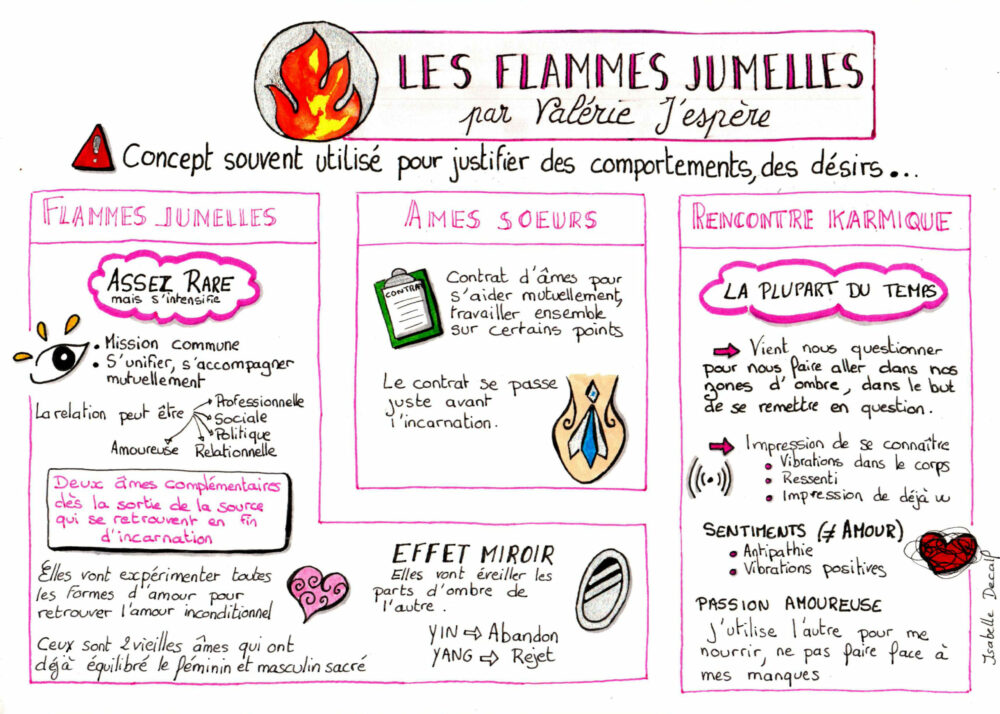 LES FLAMMES JUMELLES
par Valérie J'espère
! Concept souvent utilisé pour justifier des comportements, des désirs...
FLAMMES JUMELLES
ASSEZ RARE
mais s'intensifie
• Mission commune
• S'unifier, s'accompagner
mutuellement
La relation peut être
Professionnelle
Sociale
Politique
Relationnelle
Amoureuse
Deux âmes complémentaires
dès la sortie de la source
qui se retrouvent en fin
d'incarnation
Elles vont expérimenter toutes
les formes d'amour pour
retrouver l'amour inconditionnel
Ceux sont 2 vieilles âmes qui ont
déjà équilibré le féminin et masculin sacré
EFFET MIROIR
Elles vont éveiller les
parts d'ombre de
l'autre.
YIN ⇨ Abandon
YANG ⇨ Rejet
AMES SOEURS
CONTRAT
Contrat d'âmes pour
s'aider mutuellement,
travailler ensemble
sur certains points
Le contrat se passe
juste avant
l'incarnation.
RENCONTRE KARMIQUE
LA PLUPART DU TEMPS
➡ Vient nous questionner
pour nous faire aller dans nos
zones d'ombre, dans le but
de se remettre en question.
➡ Impression de se connaître
• Vibrations dans le corps
• Ressenti
• Impression de déjà vu
SENTIMENTS (≠ AMOUR)
• Antipathie
• Vibrations positives
PASSION AMOUREUSE
J'utilise l'autre pour me
nourrir, ne pas faire face à
mes manques
Isabelle Decalf